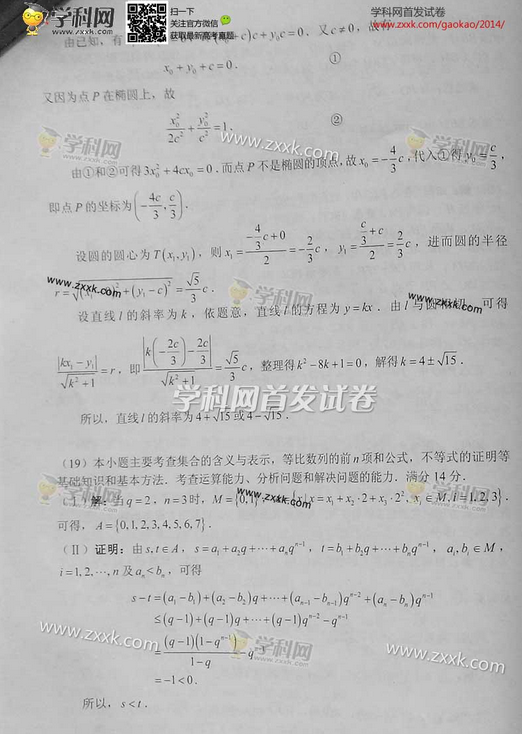 学科网
zxxk.com
扫一下
关注官方微信
获取最新高考真题
学科网首发试卷
www.zxxk.com/gaokao/2014/
由已知,有 c)c + y₀c = 0. 又c ≠ 0,故有
x₀ + y₀ + c = 0. ①
又因为点 P 在椭圆上,故
x₀²/2c² + y₀²/c² = 1. ②
由①和②可得3x₀² + 4cx₀ = 0. 而点 P 不是椭圆的顶点,故 x₀ = -4/3 c,代入①得 y₀ = c/3,
即点 P 的坐标为(-4c/3, c/3).
设圆的圆心为 T(x₁, y₁),则 x₁ = (-4/3 c + 0)/2 = -2/3 c,y₁ = (c/3 + c)/2 = 2/3 c,进而圆的半径
r = √((x₁ )² + (y₁ - c)²) = √5/3 c.
设直线 l 的斜率为 k,依题意,直线 l 的方程为 y = kx. 由 l 与圆相切,可得
|kx₁ - y₁|/√(k² + 1) = r,即 |k(-2c/3) - 2c/3|/√(k² + 1) = √5/3 c,整理得 k² - 8k + 1 = 0,解得 k = 4 ± √15.
学科网首发试卷
所以,直线 l 的斜率为 4 + √15 或 4 - √15.
(19)本小题主要考查集合的含义与表示,等比数列的前 n 项和公式,不等式的证明等
基础知识和基本方法. 考查运算能力、分析问题和解决问题的能力. 满分 14 分.
(Ⅰ)解:当 q = 2,n = 3 时,M = {0,1}, x = x₁ + x₂·2 + x₃·2², xᵢ ∈ M, i = 1,2,3}.
可得,A = {0,1,2,3,4,5,6,7}.
(Ⅱ)证明:由 s,t ∈ A,s = a₁ + a₂q + ⋯ + aₙqⁿ⁻¹,t = b₁ + b₂q + ⋯ + bₙqⁿ⁻¹,aᵢ, bᵢ ∈ M,
i = 1,2,⋯,n 及 aₙ < bₙ,可得
s - t = (a₁ - b₁) + (a₂ - b₂)q + ⋯ + (aₙ₋₁ - bₙ₋₁)qⁿ⁻² + (aₙ - bₙ)qⁿ⁻¹
≤ (q - 1) + (q - 1)q + ⋯ + (q - 1)qⁿ⁻² - qⁿ⁻¹
= (q - 1)(1 - qⁿ⁻¹)/(1 - q) - qⁿ⁻¹
= -1 < 0.
所以,s < t.
www.zxxk.com